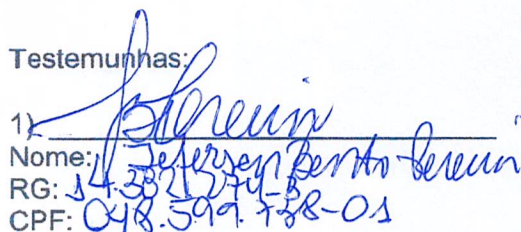 Testemunhas:
1)
Nome: Jeferson Bento Pereira
RG:
CPF: 048.599.738-01